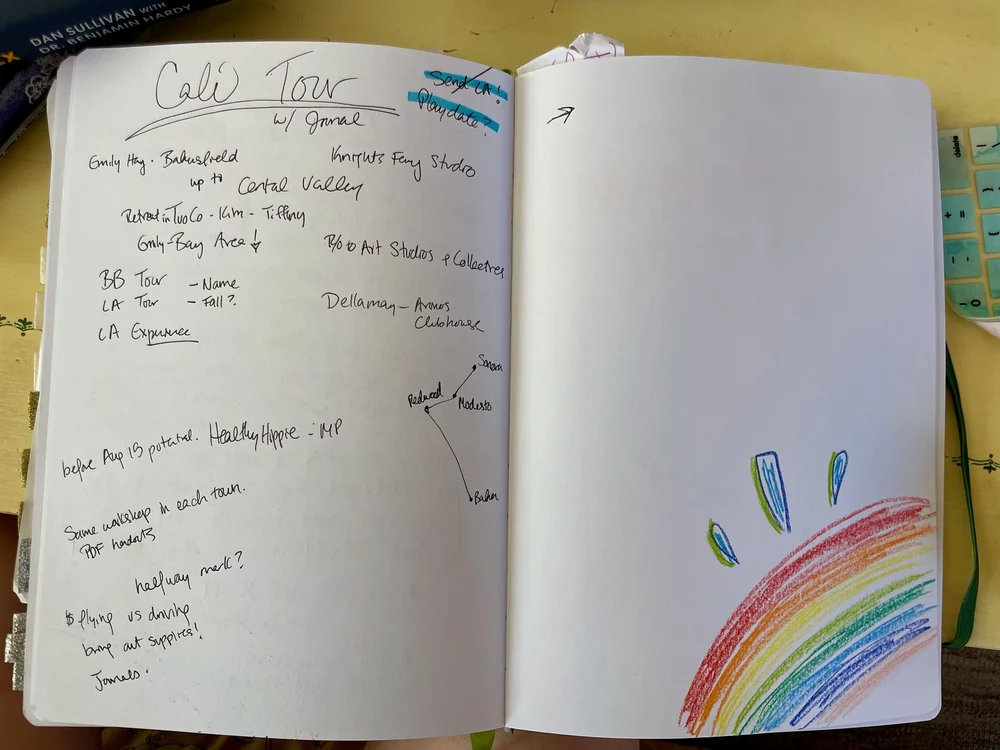 DAN SULLIVAN WITH
DR. BENJAMIN HARDY
Cali Tour
w/ Jornal
Send LA!
Play date?
Emily Hay. Bakersfield
up to Central Valley
Knights Ferry Studio
Retreat in TuoCo - Kim - Tiffiny
Emily - Bay Area!
R/o to Art Studios + Collectives
BB Tour - Name
LA Tour - Fall?
LA Experience
Dellamay - Arnos
Clubhouse
Sonora
Redwood
Modesto
Baker
before Aug 15 potential. Healthy Hippie - MP
Same workshop in each town.
PDF handouts
halfway mark?
$ flying vs driving
bring art supplies!
Jornals.
delete
+ =